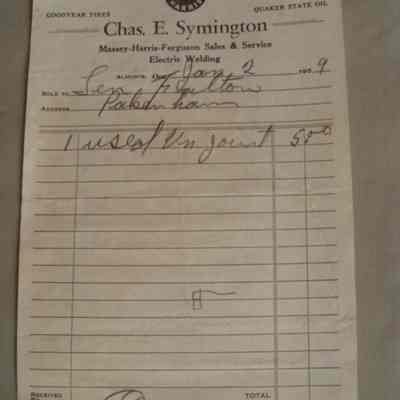 HARRIS
GOODYEAR TIRES QUAKER STATE OIL
Chas. E. Symington
Massey-Harris-Ferguson Sales & Service
Electric Welding
ALMONTE, Ont., Jan 2 1959
SOLD TO Len Fulton
ADDRESS Pakenham
1 used Un Joint 5 00
RECEIVED TOTAL